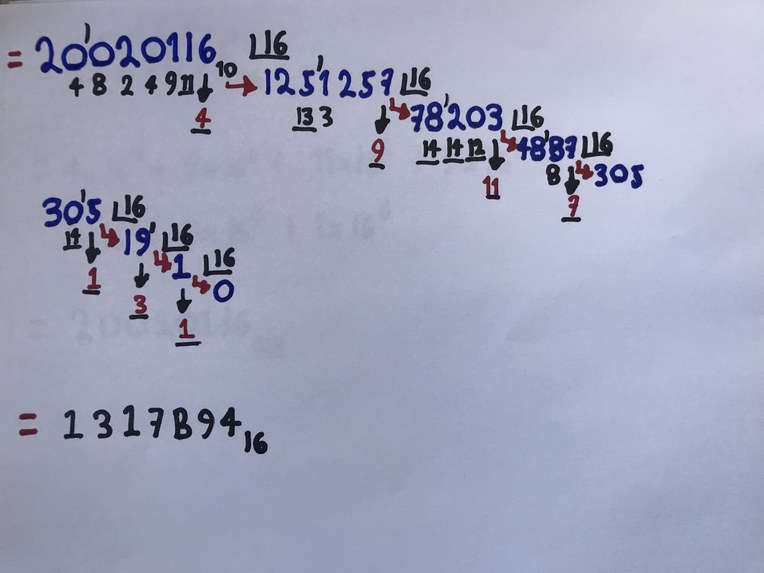 = 20'020116₁₀ 16
4 8 2 4 9 11 125'1257 16
4 13 3 78'203 16
9 14 14 12 48'87 16
11 8 305
7
30'5 16
14 19' 16
1 1 16
3 0
1
= 1317B94₁₆